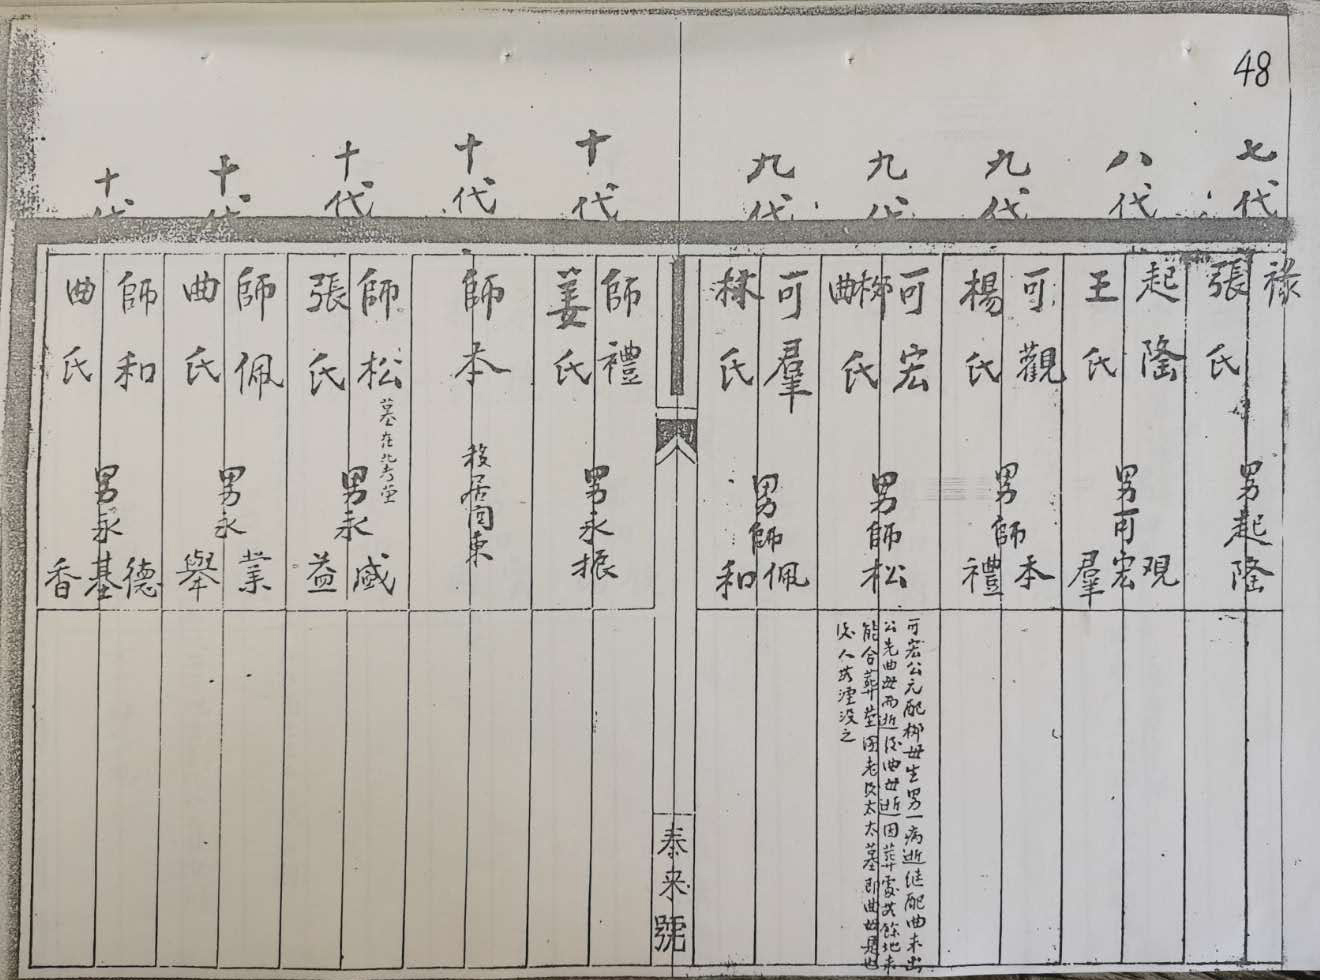 48
七代
祿
張氏
男起隆
八代
起隆
王氏
男可
觀
宏
羣
九代
可觀
楊氏
男師
本
禮
九代
可宏
柳
曲
氏
男師松
可宏公元配柳母生男一病逝继配曲未出
公先曲母而逝後曲母逝因葬處其餘地未
能合葬茔园老改太太墓即曲母是也
九代
可羣
林氏
男師
佩
和
十代
師禮
姜氏
男永振
十代
師本
移居関東
十代
師松
墓在北
張氏
男永
盛
益
十代
師佩
曲氏
男永
業
舉
十代
師和
曲氏
男永
德
基
香
泰来號